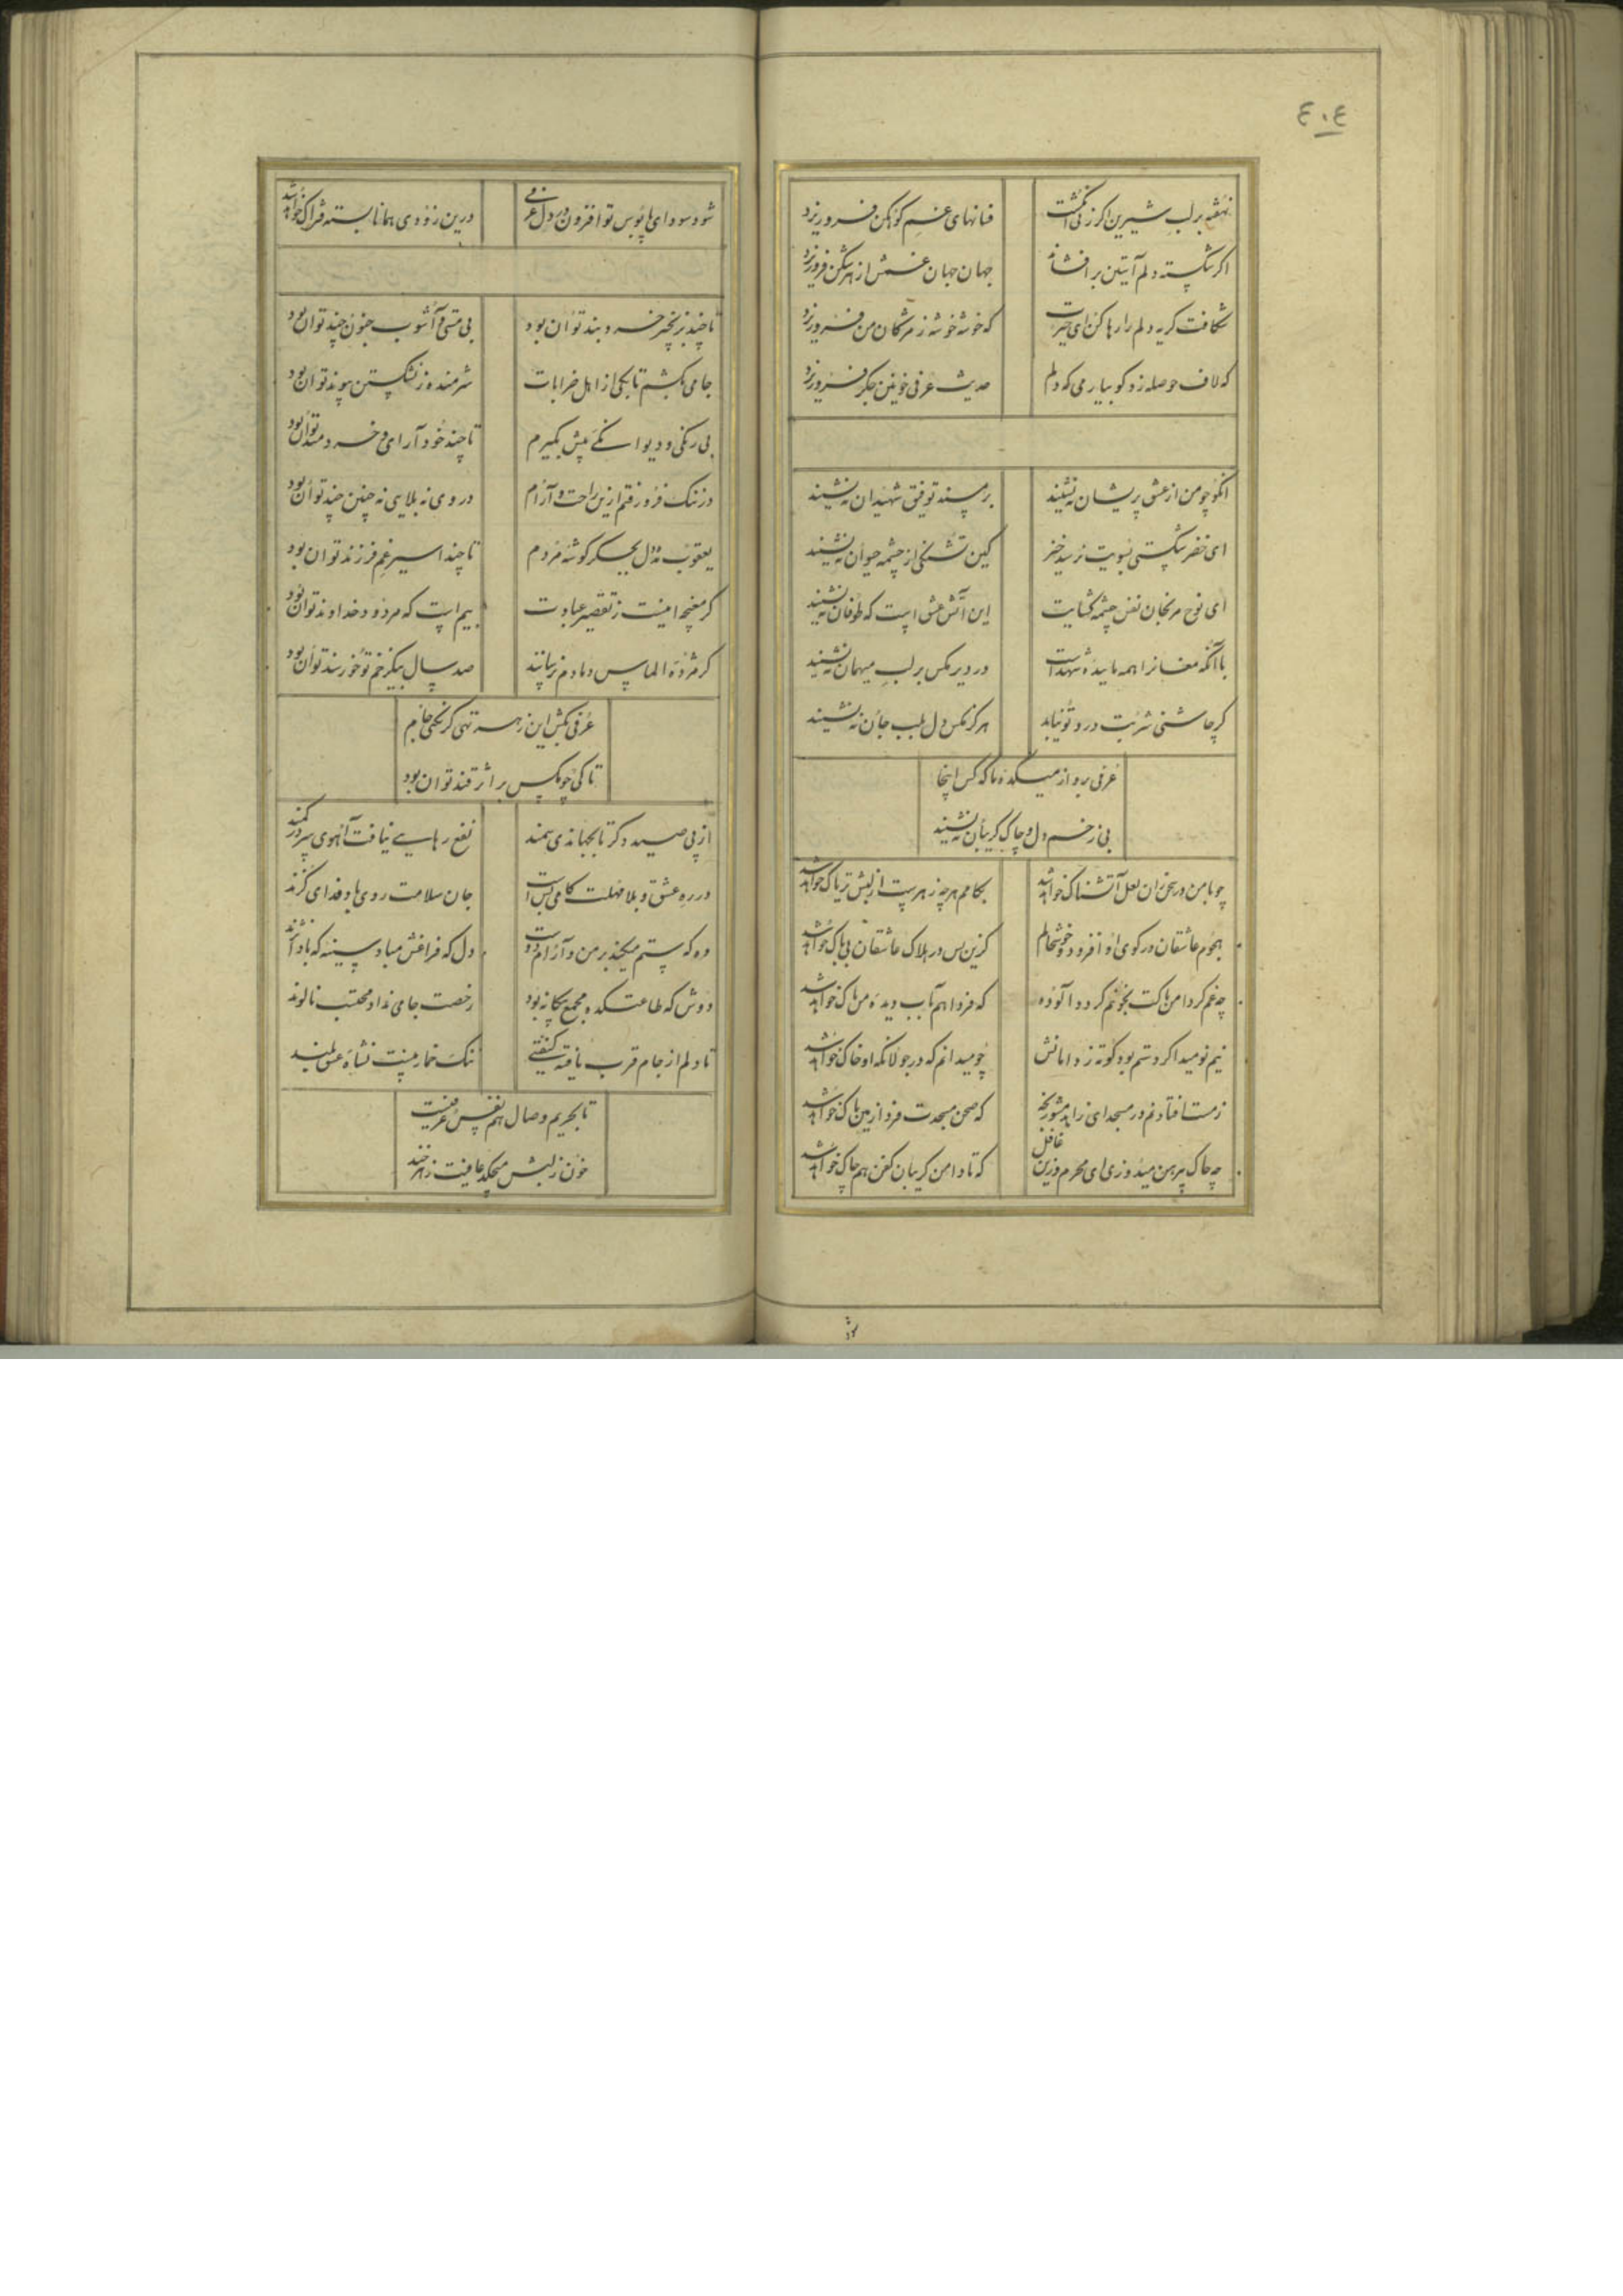 ٤٠٤
نهفته بر لب شیرین اگر زنی انگشت
فسانهای غم کوهکن فرو ریزد
اگر شکسته دلم آستین بر افشاند
جهان جهان غمش از هر شکن فرو ریزد
شکافت گریه دلم را رها کن ای حیرت
که خوشه خوشه ز مژکان من فرو ریزد
که لاف حوصله زد کو بیار می که دلم
حدیث عرفی خونین جکر فرو ریزد
انکو چو من از عشق پریشان نه نشیند
بر مسند توفیق شهیدان نه نشیند
ای خضر شکستی بسویت نرسد خیز
کین تشنکی از چشمه حیوان نه نشیند
ای نوح مرنجان نفس چشمه کشایت
این آتش عشق است که طوفان نه نشیند
با آنکه مغانرا همه مایده شهد است
در دیر مکس بر لب میهمان نه نشیند
کر چاشنی شربت درد تو نیابد
هرکز مکس دل بلب جان نه نشیند
عرفی برو از میکده ما که کس اینجا
بی زخم دل و چاک کریبان نه نشیند
چو با من در سخن زان لعل آتشناک خواهد شد
بکامم هر چه زهر است از لبش تریاک خواهد شد
هجوم عاشقان در کوی او افزود و خوشحالم
کزین بس در هلاک عاشقان بی باک خواهد شد
چه غم کر دامن پاکت بخونم کردد آلوده
که فردا هم بآب دیده من پاک خواهد شد
نیم نومید اکر دستم بود کوته ز دامانش
چو میدانم که در جولانکه او خاک خواهد شد
ز مست افتادنم در مسجد ای زاهد مشو رنجه
که صحن مسجدت فردا ازین پاک خواهد شد
غافل
چه چاک پیرهن میدوزی ای محرم وزین
که تا دامن کریبان کفن هم چاک خواهد شد
شود سودای پابوس تو افزون در دل عرفی
درین زودی همانا بسته فتراک خواهد شد
تا چند بزنجیر خرد بند توان بود
بی مستی و آشوب جنون چند توان بود
جامی بکشم تا بکی از اهل خرابات
شرمنده ز نشکستن سوکند توان بود
بی رنکی و دیوانکی پیش بکیرم
تا چند خود آرای و خردمند توان بود
در ننک فرو رفتم ازین راحت و آرام
دردی نه بلایی نه چنین چند توان بود
یعقوب مدل بجکر کوشه مردم
تا چند اسیر غم فرزند توان بود
کر مغبچه اینست ز تقصیر عبادت
بیم است که مردود خداوند توان بود
کر مژده الماس دمادم برسانند
صد سال بیک زخم تو خورسند توان بود
عرفی بکش این زهر تهی کر نکنی جام
تا کی چو مکس بر اثر قند توان بود
از پی صید دکر تا بجهاندی سمند
نفع رهایی نیافت آهوی سر در کمند
در ره عشق و بلا مهلت کامی بس است
جان سلامت روی ها و فدای کزند
وه که ستم میکند بر من و آرام دوست
دل که فراغش مباد سینه که باد آتشند
دوش که طاعتکده مجمع بیکانه بود
رخصت جامی نداد محتسب نالوند
تا دلم از جام قرب یافته کیفیتی
ننک خمار منست نشاه عشق بلند
تا بحریم وصال هم نفس عرفیست
خون ز لبش میچکد عافیت زهر خند